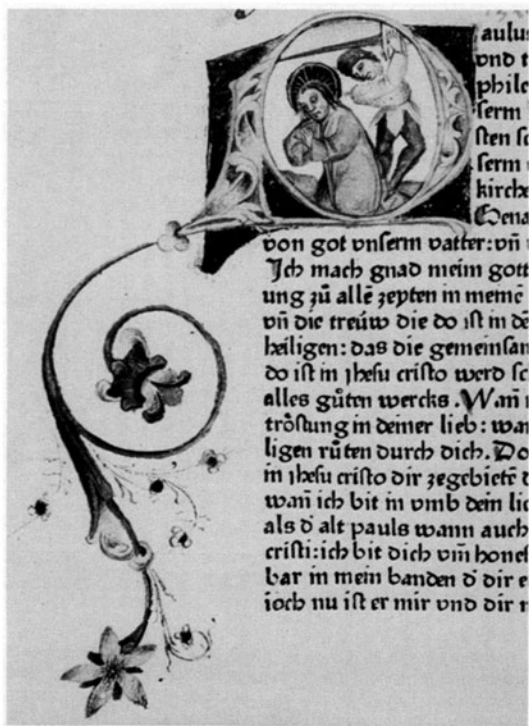 aulus
vnd t
phile
serm
sten
serm
kirche
Gena
von got vnserm vatter: vñ
Jch mach gnad meim gott
ung zů allē zepten in memē
vñ die treúw die do ist in dē
heiligen: das die gemeinsan
do ist in jhesu cristo werd sc
alles gůten wercks. Wañ
trőstung in deiner lieb: wan
ligen růten durch dich. Do
in jhesu cristo dir zegebietē
wañ ich bit in vmb dein lic
als d̓ alt pauls wann auch
cristi: ich bit dich vm̄ hones
bar in mein banden d̓ dir e
ioch nu ist er mir vnd dir n